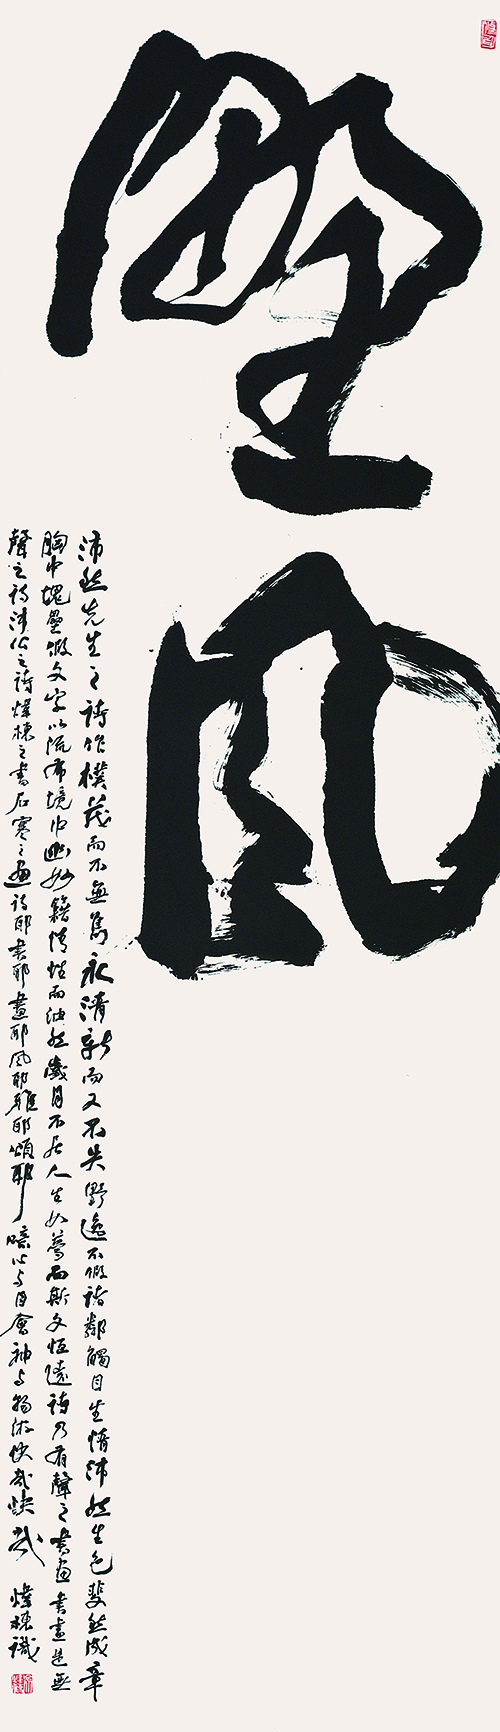 野風
沛然先生之詩作樸茂而不無雋永清新而又不失野逸不假諧鄰觸目生情沛然生色斐然成章
胸中塊壘假文字以流布境中幽妙籍情性而油然歲月不居人生如夢而斯文恆遠詩乃有聲之書畫書畫是無
聲之詩沛公之詩煒棟之書石寒之畫詩耶書耶畫耶風耶雅耶頌耶噫心与目會神与物游快哉快哉 煒棟識